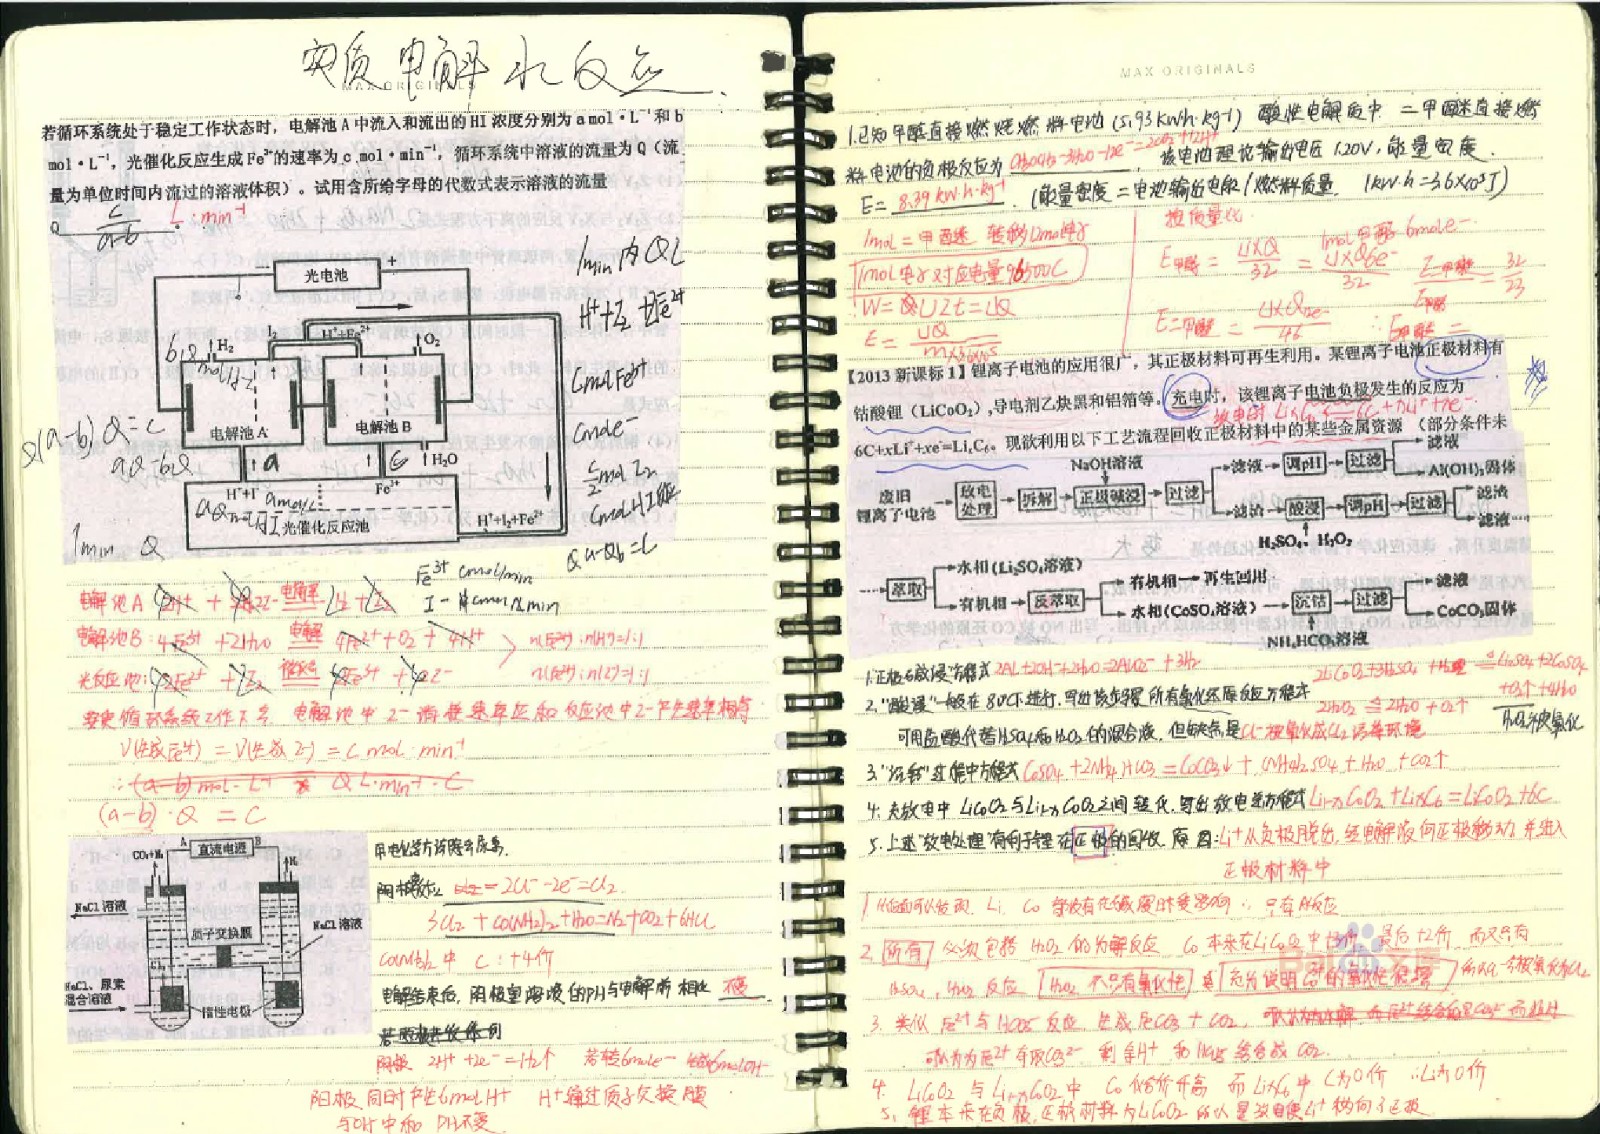 实质电解水反应.
MAX ORIGINALS
若循环系统处于稳定工作状态时，电解池 A 中流入和流出的 HI 浓度分别为 a mol·L⁻¹ 和 b
mol·L⁻¹，光催化反应生成 Fe³⁺的速率为 c mol·min⁻¹，循环系统中溶液的流量为 Q（流
量为单位时间内流过的溶液体积）。试用含所给字母的代数式表示溶液的流量
Q c/(a-b) L·min⁻¹
1min 内 QL
H⁺+I₂ +Fe²⁺
光电池
I₂
H⁺+Fe²⁺
H₂
O₂
bQ mol HI
cmolFe²⁺
电解池 A
电解池 B
(a-b)Q=c
cmole⁻
aQ-bQ
a
c
H₂O
c/2 mol I₂
H⁺+I⁻
a mol/L
Fe³⁺
cmolHI
aQ mol HI
光催化反应池
H⁺+I₂+Fe²⁺
1min Q
Qa-Qb=c
Fe³⁺ cmol/min
I⁻ cmol/min
电解池A 2H⁺ + 2I⁻ 电解 H₂+I₂
电解池B: 4Fe³⁺ +2H₂O 电解 4Fe²⁺+O₂+4H⁺
n(Fe³⁺):n(H⁺)=1:1
光反应池: 2Fe²⁺ + I₂ 催化 2Fe³⁺+2I⁻
n(Fe³⁺):n(I⁻)=1:1
安定循环系统工作下去，电解池中 I⁻消耗速率应和反应池中I⁻产生速率相等
V(生成Fe³⁺) = V(生成 I⁻) = C mol·min⁻¹
∴(a-b) mol·L⁻¹ × Q L·min⁻¹ = C
(a-b)·Q = C
CO₂+N₂
A
直流电源
B
H₂
NaCl 溶液
质子交换膜
NaCl 溶液
Cl₂
NaCl、尿素
混合溶液
惰性电极
用电化学方法除去尿素.
阳极反应 2Cl⁻-2e⁻=Cl₂
3Cl₂ + CO(NH₂)₂ +H₂O=N₂+CO₂+6HCl
CO(NH₂)₂中 C：+4价
电解结束后，阴极室溶液的PH与电解前相比 不变
阴极 2H⁺ +2e⁻=H₂↑ 若转6mole⁻ 生成6molOH⁻
阳极同时产生6molH⁺ H⁺通过质子交换膜
与OH⁻中和 PH不变
MAX ORIGINALS
1.已知甲醇直接燃烧燃料电池(5.93kW·h·kg⁻¹) 酸性电解质中 二甲醚直接燃
料电池的负极反应为 CH₃OCH₃+3H₂O-12e⁻=2CO₂+12H⁺ 该电池理论输出电压1.20V,能量密度
E= 8.39 kW·h·kg⁻¹ (能量密度=电池输出电能/燃料质量 1kW·h=3.6×10⁶J)
1mol二甲醚 转移12mol电子
1mol电子对应电量96500C
W= UIt=UQ
E= UQ/m×3.6×10⁶
按质量比
1mol甲醇 6mole⁻
E甲醇 = U×Q/32 = U×Q6e⁻/32
32/23
E二甲醚 = U×Q12e⁻/46
【2013 新课标 1】锂离子电池的应用很广，其正极材料可再生利用。某锂离子电池正极材料有
钴酸锂（LiCoO₂）,导电剂乙炔黑和铝箔等。充电时，该锂离子电池负极发生的反应为
放电时 LixC₆=6C+xLi⁺+xe⁻
6C+xLi⁺+xe⁻=LixC₆。现欲利用以下工艺流程回收正极材料中的某些金属资源（部分条件未
NaOH溶液
滤液
滤液
调pH
过滤
Al(OH)₃固体
废旧
锂离子电池
放电
处理
拆解
正极碱浸
过滤
滤渣
滤渣
酸浸
调pH
过滤
滤液……
H₂SO₄、H₂O₂
萃取
水相(Li₂SO₄溶液)
有机相
反萃取
有机相
再生回用
水相(CoSO₄溶液)
沉钴
过滤
滤液
CoCO₃固体
NH₄HCO₃溶液
1.正极碱浸方程式 2Al+2OH⁻+2H₂O=2AlO₂⁻+3H₂
2LiCoO₂+3H₂SO₄ +H₂O₂ △ Li₂SO₄+2CoSO₄
+O₂↑+4H₂O
2."酸浸"一般在80℃下进行,写出该步骤所有氧化还原反应方程式
2H₂O₂ △ 2H₂O + O₂↑
H₂O₂被氧化
可用盐酸代替H₂SO₄和H₂O₂的混合液，但缺点是Cl⁻被氧化成Cl₂污染环境
3."沉钴"过程中方程式 CoSO₄ +2NH₄HCO₃ =CoCO₃↓+ (NH₄)₂SO₄ + H₂O +CO₂↑
4.充放电中 LiCoO₂与Li₁₋ₓCoO₂之间转化,写出放电总方程式Li₁₋ₓCoO₂+LixC₆=LiCoO₂+6C
5.上述"放电处理"有利于锂在正极的回收 原因:Li⁺从负极脱出,经电解液向正极移动 并进入
正极材料中
2.所有 必须包括 H₂O₂ 的分解反应 Co本来在LiCoO₂中+3价 最后+2价
H₂O₂ 不只有氧化性
3. 类似 Fe²⁺与HCO₃⁻反应 生成FeCO₃ + CO₂
可认为为Fe²⁺夺取CO₃²⁻ 剩余H⁺ 和 HCO₃⁻ 结合成 CO₂.
4. LiCoO₂ 与 Li₁₋ₓCoO₂中 Co化合价升高 而LixC₆中 C为0价 ∴Li为0价
5. 锂本来在负极,正极材料为LiCoO₂ 所以是放电使Li⁺移向了正极